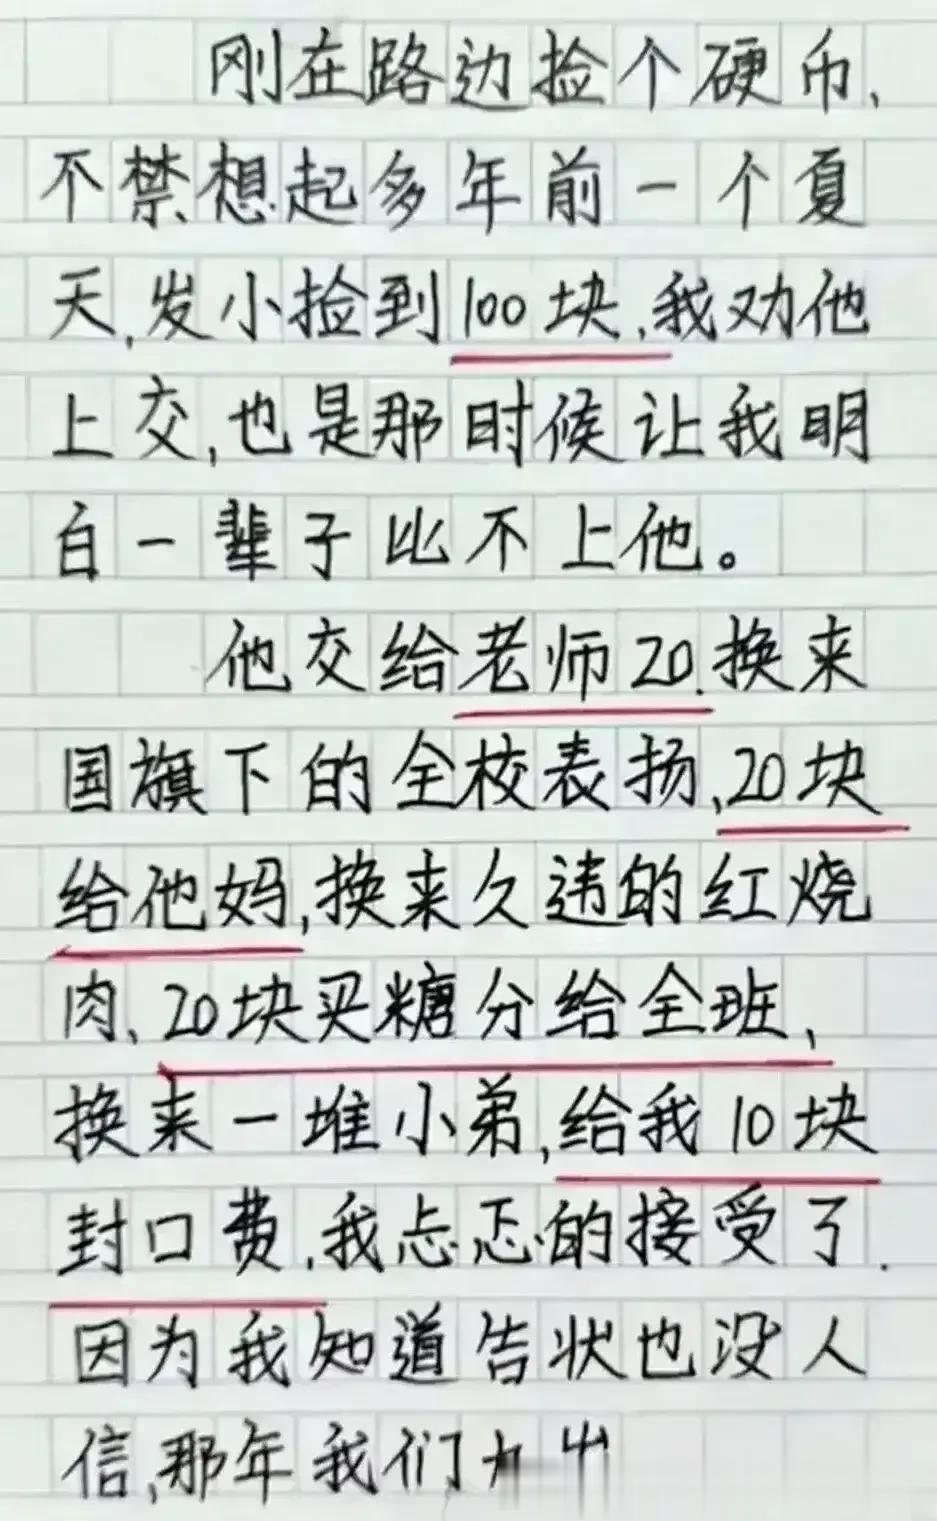 刚在路边捡个硬币,
不禁想起多年前一个夏
天,发小捡到100块,我劝他
上交,也是那时候让我明
白一辈子比不上他。
他交给老师20,换来
国旗下的全校表扬,20块
给他妈,换来久违的红烧
肉,20块买糖分给全班,
换来一堆小弟,给我10块
封口费,我忐忑的接受了.
因为我知道告状也没人
信,那年我们